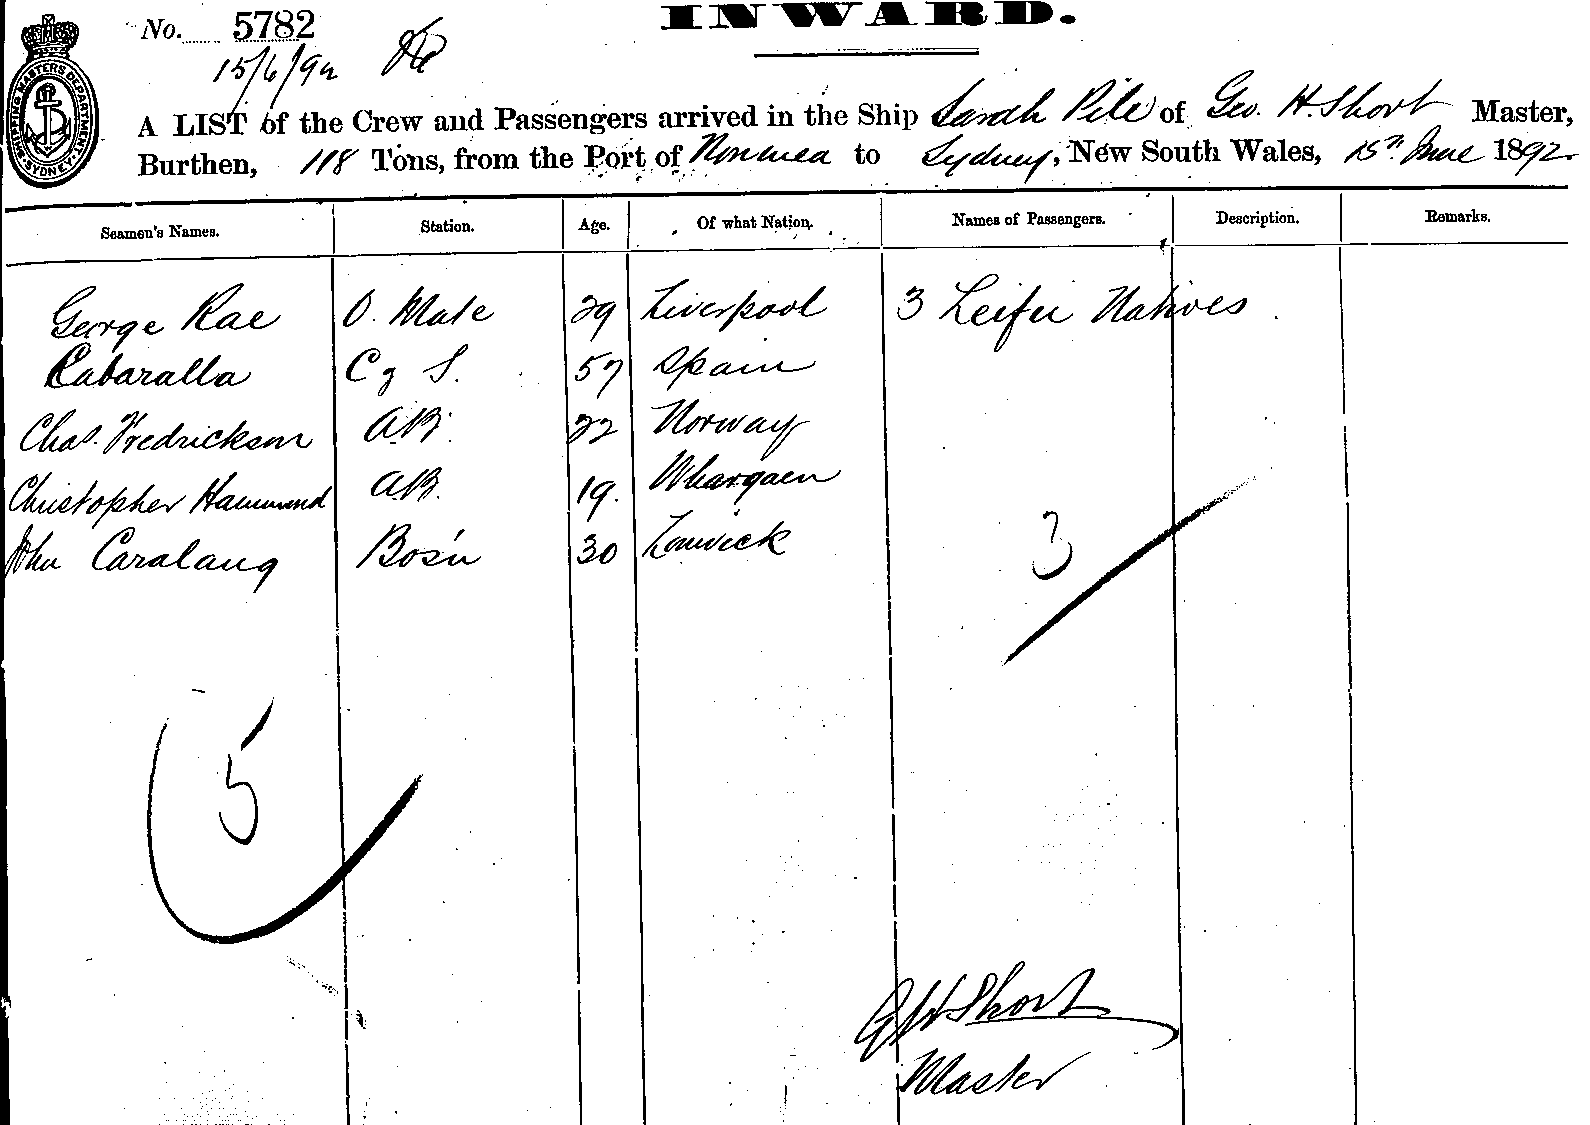 INWARD.
No. 5782
15/6/92
SHIPPING MASTERS DEPARTMENT SYDNEY
A LIST of the Crew and Passengers arrived in the Ship Sarah Pile of Geo. H. Short Master,
Burthen, 118 Tons, from the Port of Noumea to Sydney, New South Wales, 15th June 1892
Seamen's Names. Station. Age. Of what Nation. Names of Passengers. Description. Remarks.
George Rae O. Mate 29 Liverpool 3 Leifu Natives
Cabaralla C & S. 57 Spain
Chas. Fredrickson A.B. 22 Norway
Christopher Hammond A.B. 19.
John Bos'n 30
3
5
G H Short
Master